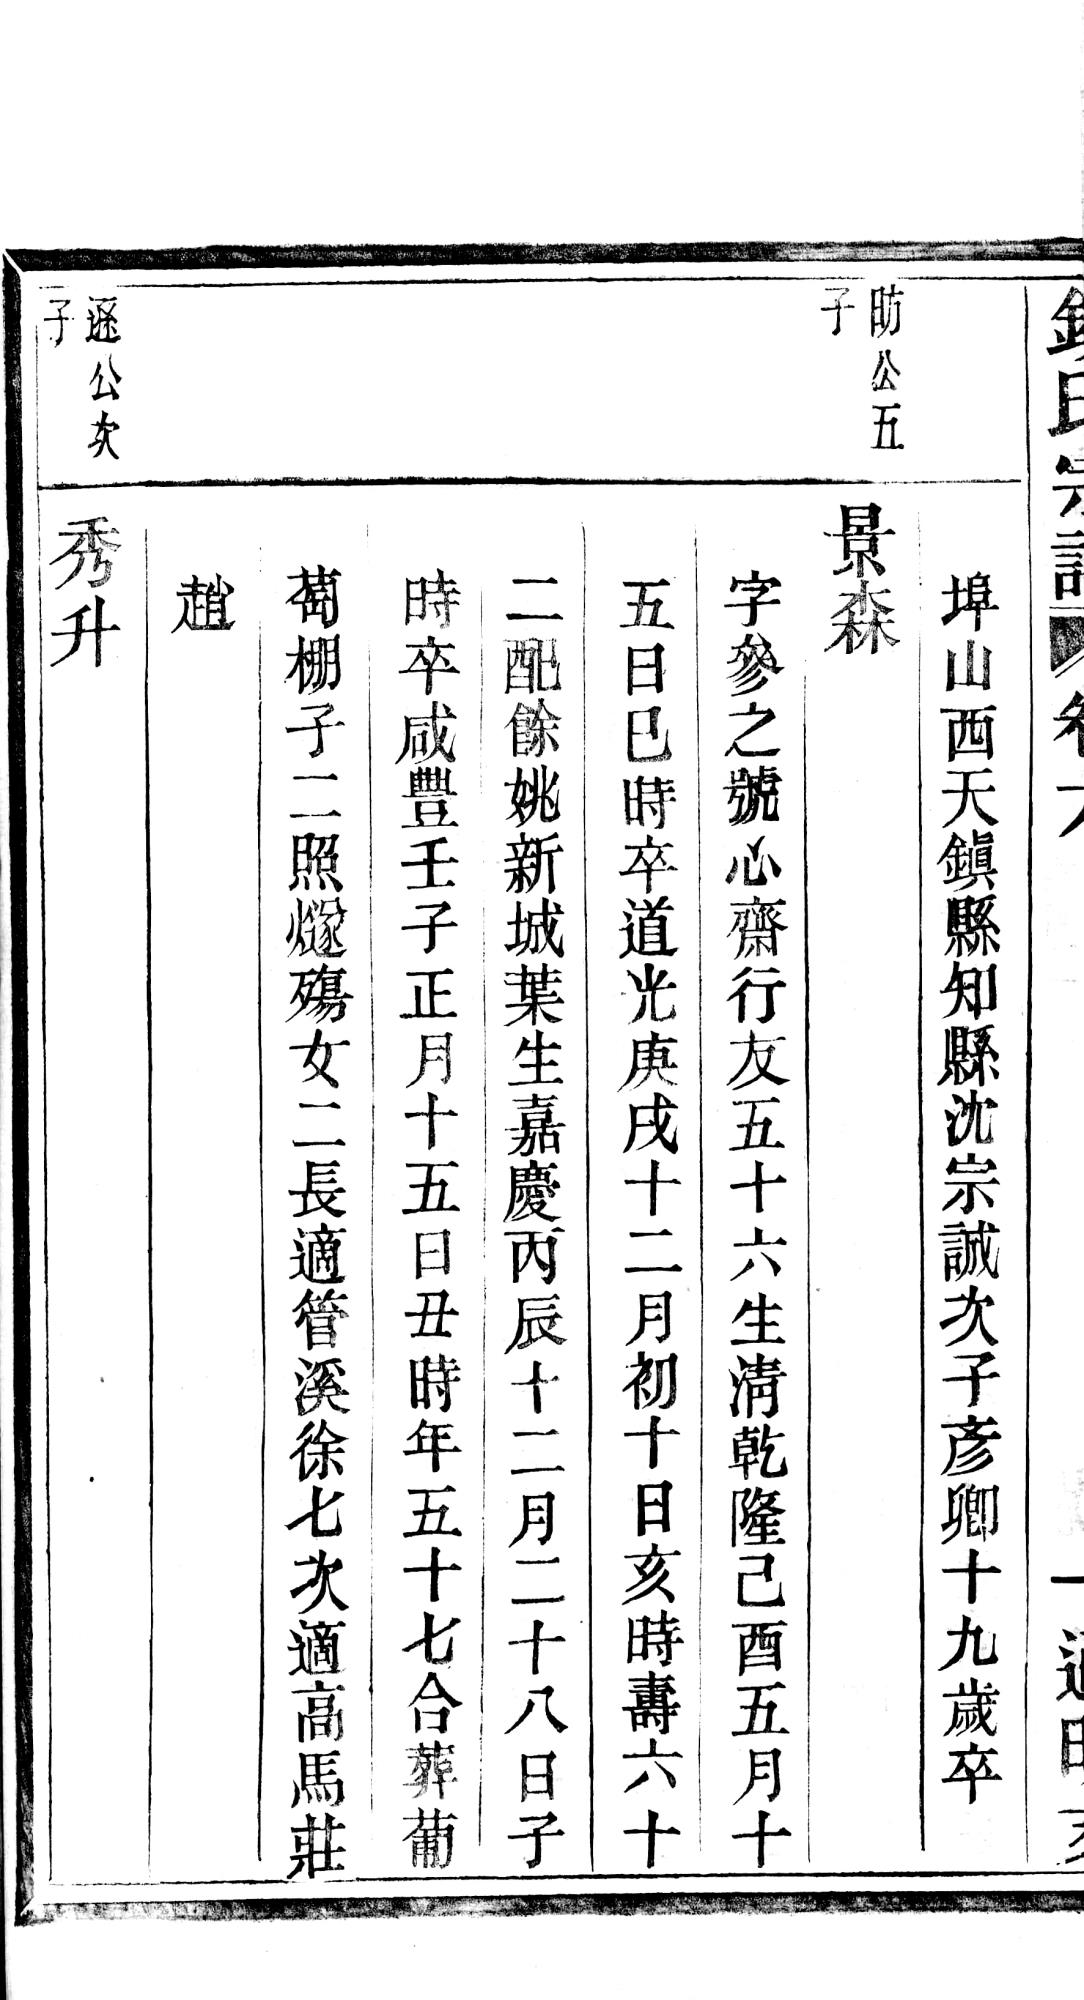 氏宗譜 卷六
埠山西天鎭縣知縣沈宗誠次子彥卿十九歲卒
昉公五
子
景森
字參之號心齋行友五十六生淸乾隆己酉五月十
五日巳時卒道光庚戌十二月初十日亥時壽六十
二配餘姚新城葉生嘉慶丙辰十二月二十八日子
時卒咸豐壬子正月十五日丑時年五十七合葬葡
萄棚子二照燧殤女二長適管溪徐七次適高馬莊
趙
遜公次
子
秀升